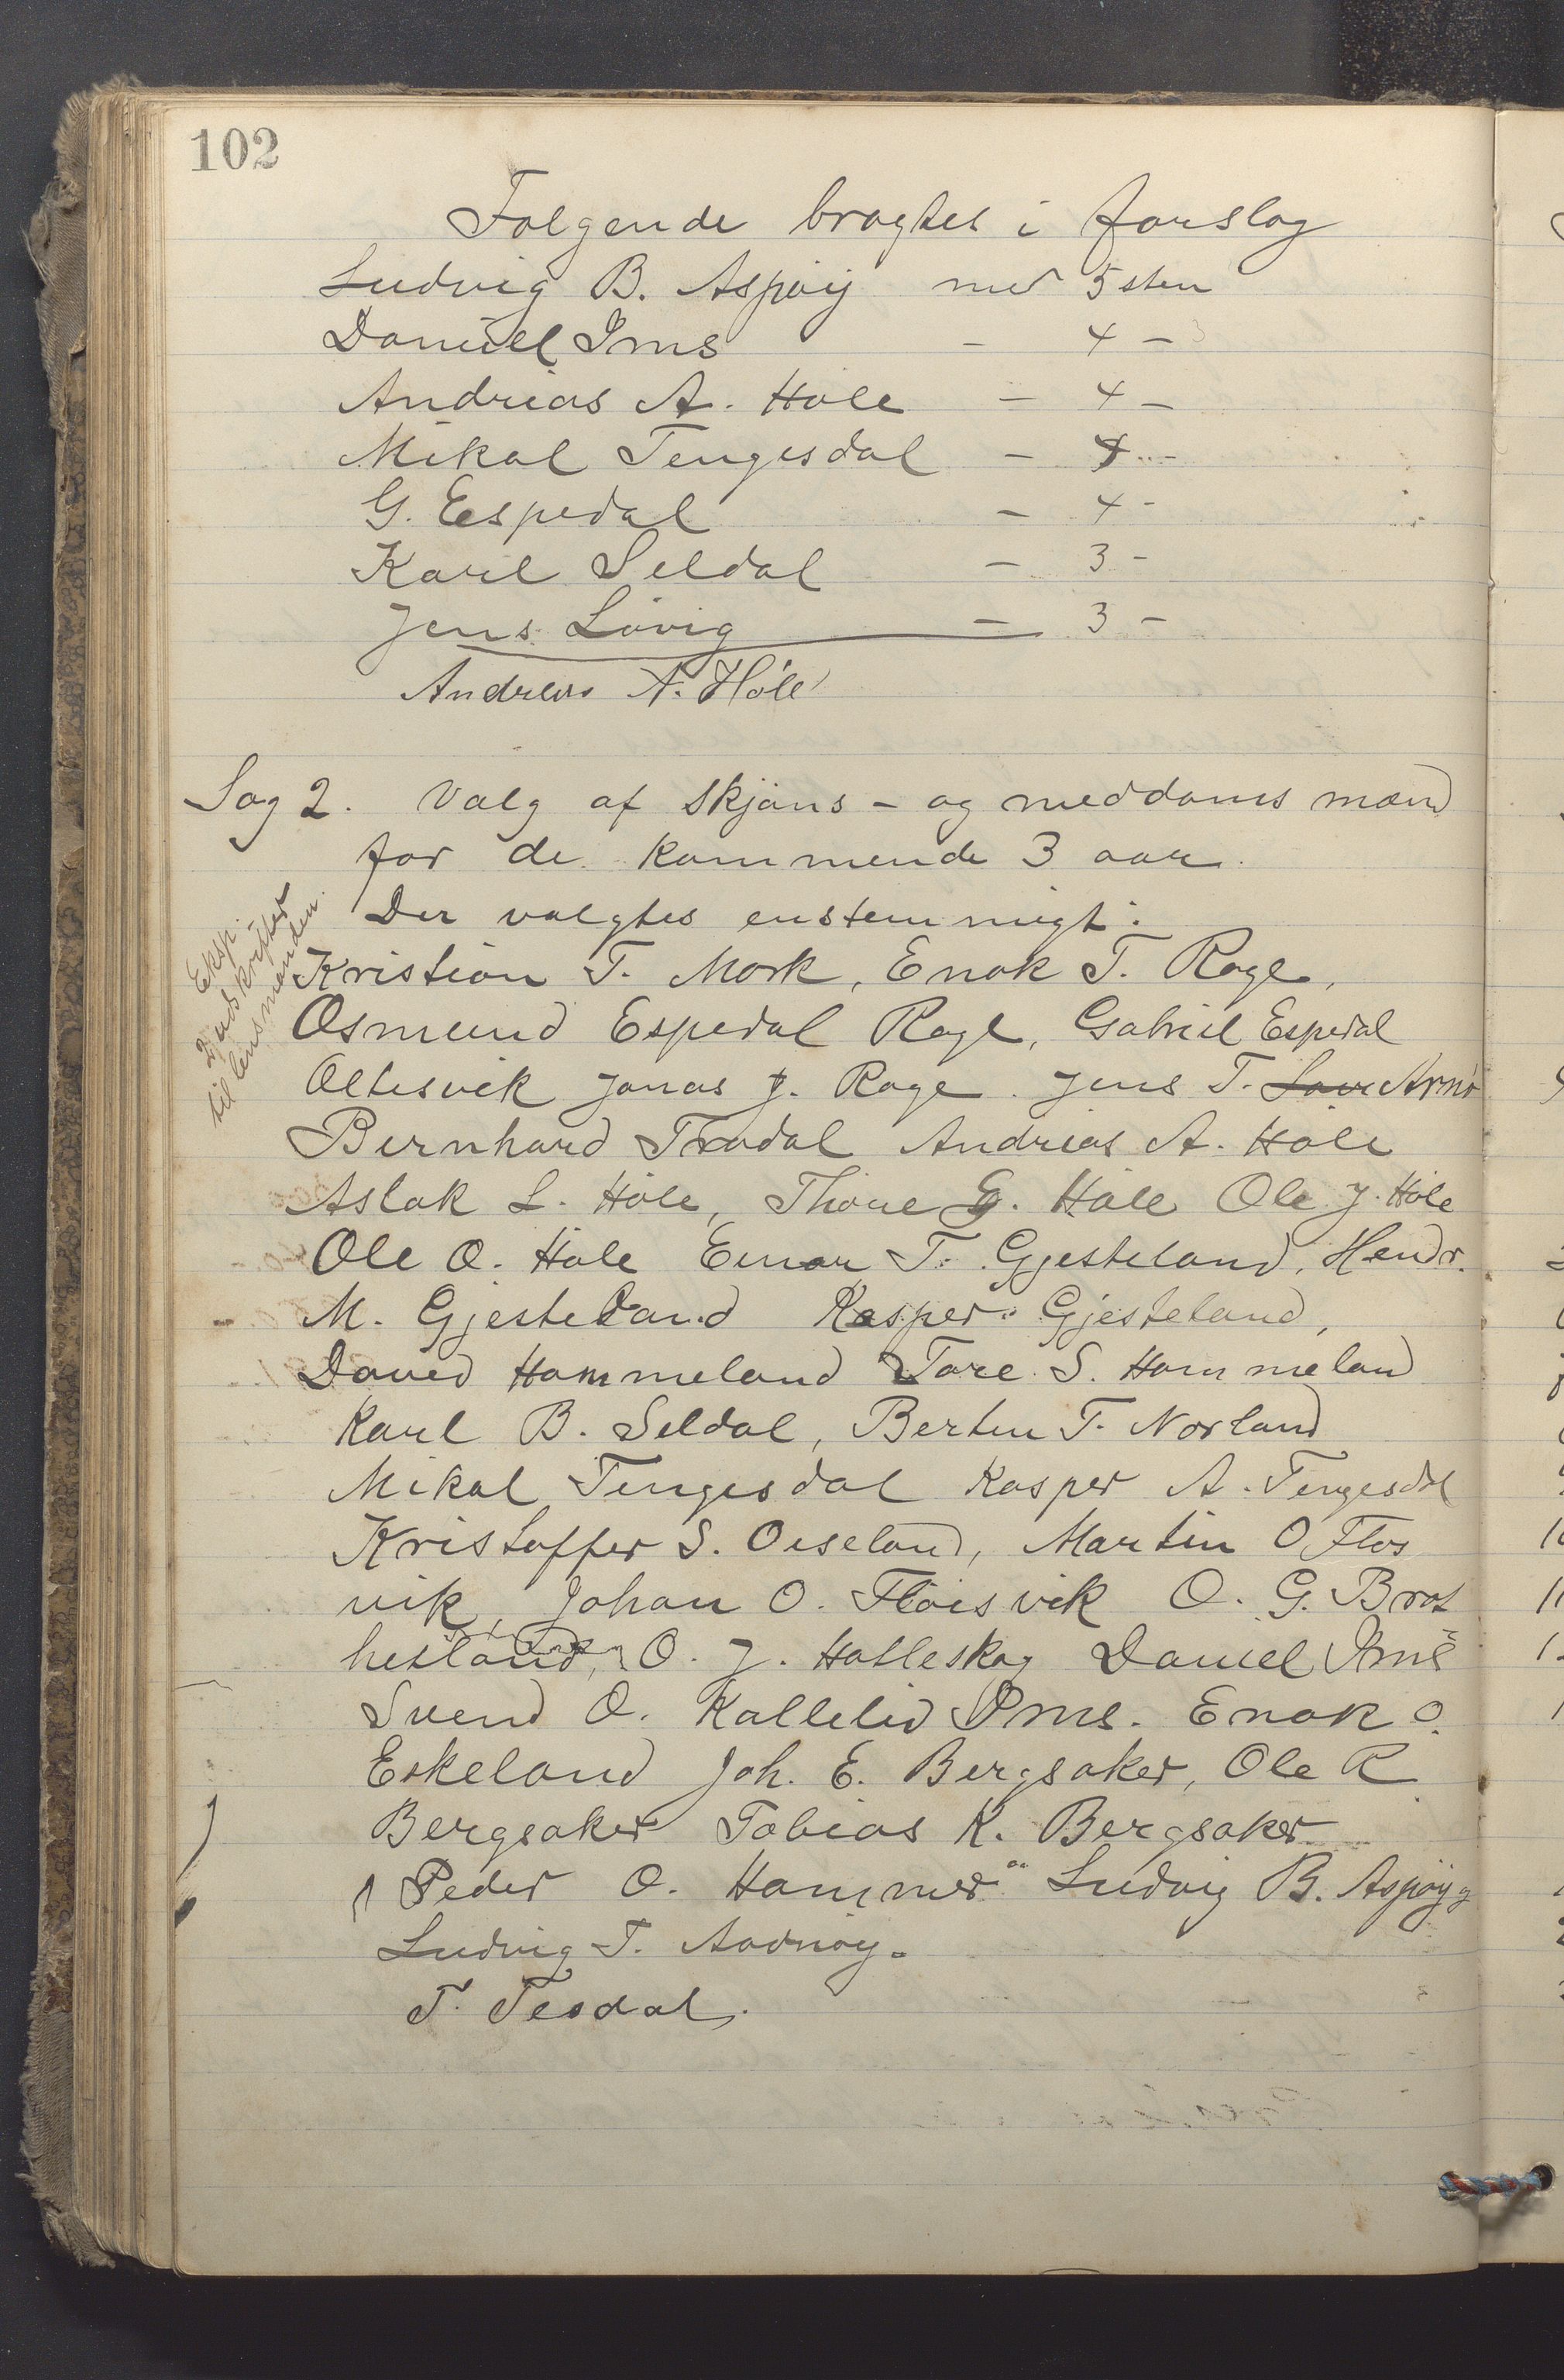 102
Følgende bragtes i forslag
Ludvig B. Aspøy med 5 stem
Daniel Ims - 4 -
Andreas A. Høle - 4 -
Mikal Tengesdal - 4 -
G. Espedal - 4 -
Karl Seldal - 3 -
Jens Løvig - 3 -
Andreas A. Høle
Sag 2. Valg af skjøns- og meddoms mænd
for de kommende 3 aar.
Der valgtes enstemmigt:
Eksp.
2 udskrifter
til lensmanden
Kristian T. Mørk, Enok T. Røgl,
Osmund Espedal Rage, Gabriel Espedal
Oltesvik Jonas J. Rage. Jens T. Arnø
Bernhard Trodal Andreas A. Høle
Aslak L. Høle, Thore G. Høle Ole J. Høle
Ole O. Høle Einar T. Gjesteland, Hendr.
M. Gjesteland Kasper Gjesteland,
David Hommeland Tore S. Hommelan
Karl B. Seldal, Berten T. Norland
Mikal Tengesdal Kasper A. Tengesdal
Kristoffer S. Oiseland, Martin O. Fløs
vik, Johan O. Fløisvik O. G. Brat
hetland, O. J. Halleskog Daniel Ims
Svend O. Kallelid Ims. Enok O.
Eskeland Joh. E. Bergsaker, Ole R
Bergsaker Tobias K. Bergsaker
Peder O. Hammer Ludvig B. Aspøy
Ludvig T. Aadnøy.
T. Tesdal.